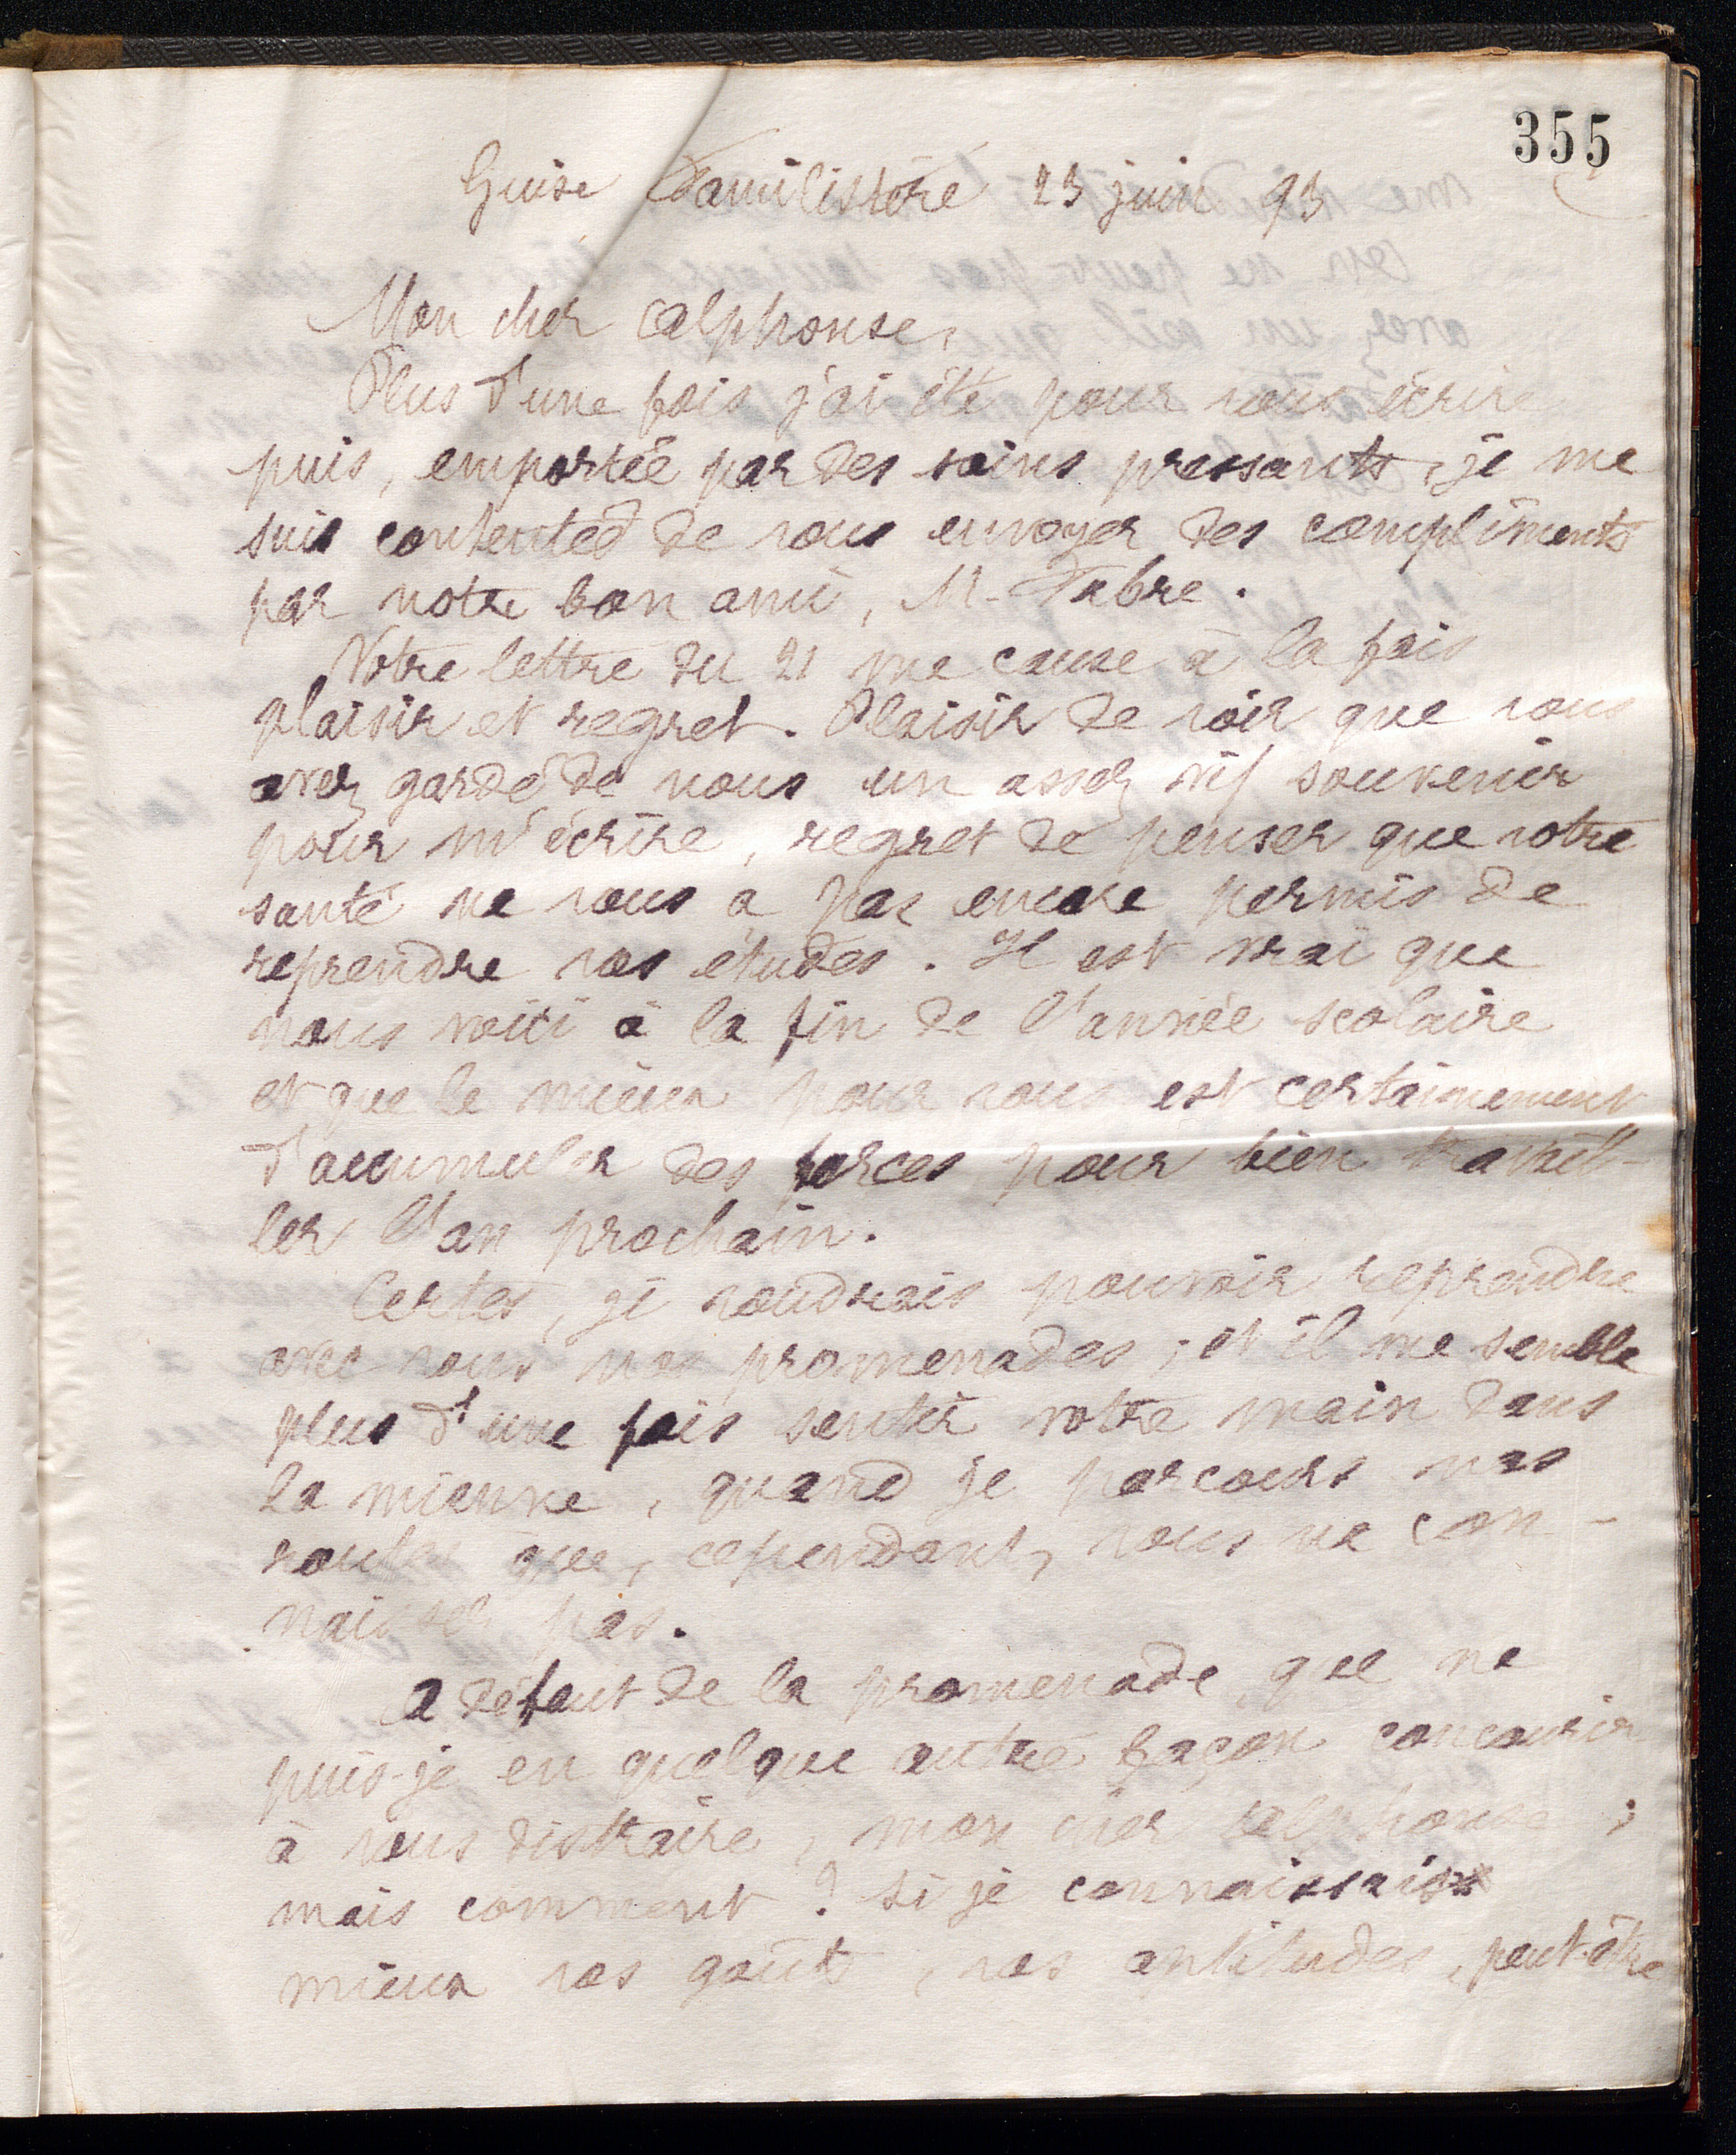 355
Guise Familistère 23 juin 93
Mon cher Alphonse,
Plus d'une fois j'ai été pour vous écrire
puis, emportée par des soins pressants, je me
suis contentée de vous envoyer des compliments
par notre bon ami, M. Fabre.
Votre lettre du 21 me cause à la fois
plaisir et regret. Plaisir de voir que vous
avez gardé de nous un assez vif souvenir
pour m'écrire, regret de penser que votre
santé ne vous a pas encore permis de
reprendre vos études. Il est vrai que
nous voici à la fin de l'année scolaire
et que le mieux pour vous est certainement
d'accumuler des forces pour bien travail-
ler l'an prochain.
Certes, je voudrais pouvoir reprendre
avec vous nos promenades ; et il me semble
plus d'une fois sentir votre main dans
la mienne, quand je parcours nos
routes que, cependant, vous ne con-
naissez pas.
A défaut de la promenade, que ne
puis-je en quelque autre façon concourir
à vous distraire, mon cher Alphonse ;
mais comment ? Si je connaissais
mieux vos goûts, vos aptitudes, peut-être